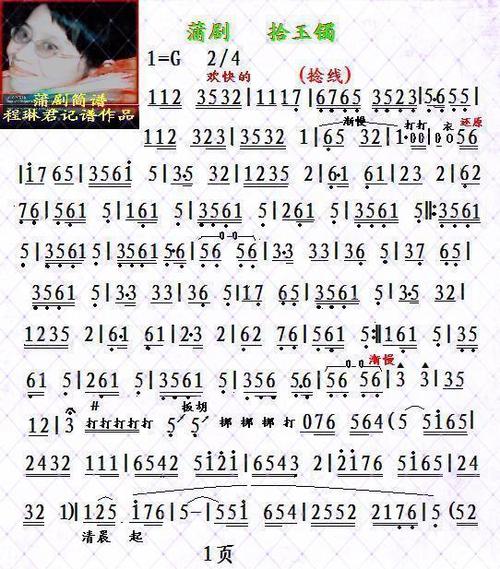 蒲剧 拾玉镯
1=G 2/4
欢快的 (捻线)
蒲剧简谱
程琳君记谱作品
112 3532|1117|6765 3523|5·655|
渐慢 打打 衣 还原
112 3532 1|65 32|1·00|0 56
|1765|3561 5|3·35 32|1235 2|6·1 61|23 2|62
76|561 5|161 5|3561 5|261 5|3561 5||:3561
5|3561 5|3561 5·6|56 56|3·3 33|36 5|37 65|
3561 5|3·3 33|36 5|37 65|3561 5|3·35 32|
1235 2|6·1 61|2·3 2|62 76|561 5:||161 5|35
渐慢
61 5|261 5|3561 5|356 5·6|56 56|3 3|35
# 板胡
12|3 打打打打打 5 5 梆 梆 梆 打 076 564 (5 5165|
2432 111|6542 5121|6543 2|12176 5165|24
32 1)|125 176|5-|5551 654|2552 2176|5 (52
清晨 起
1页